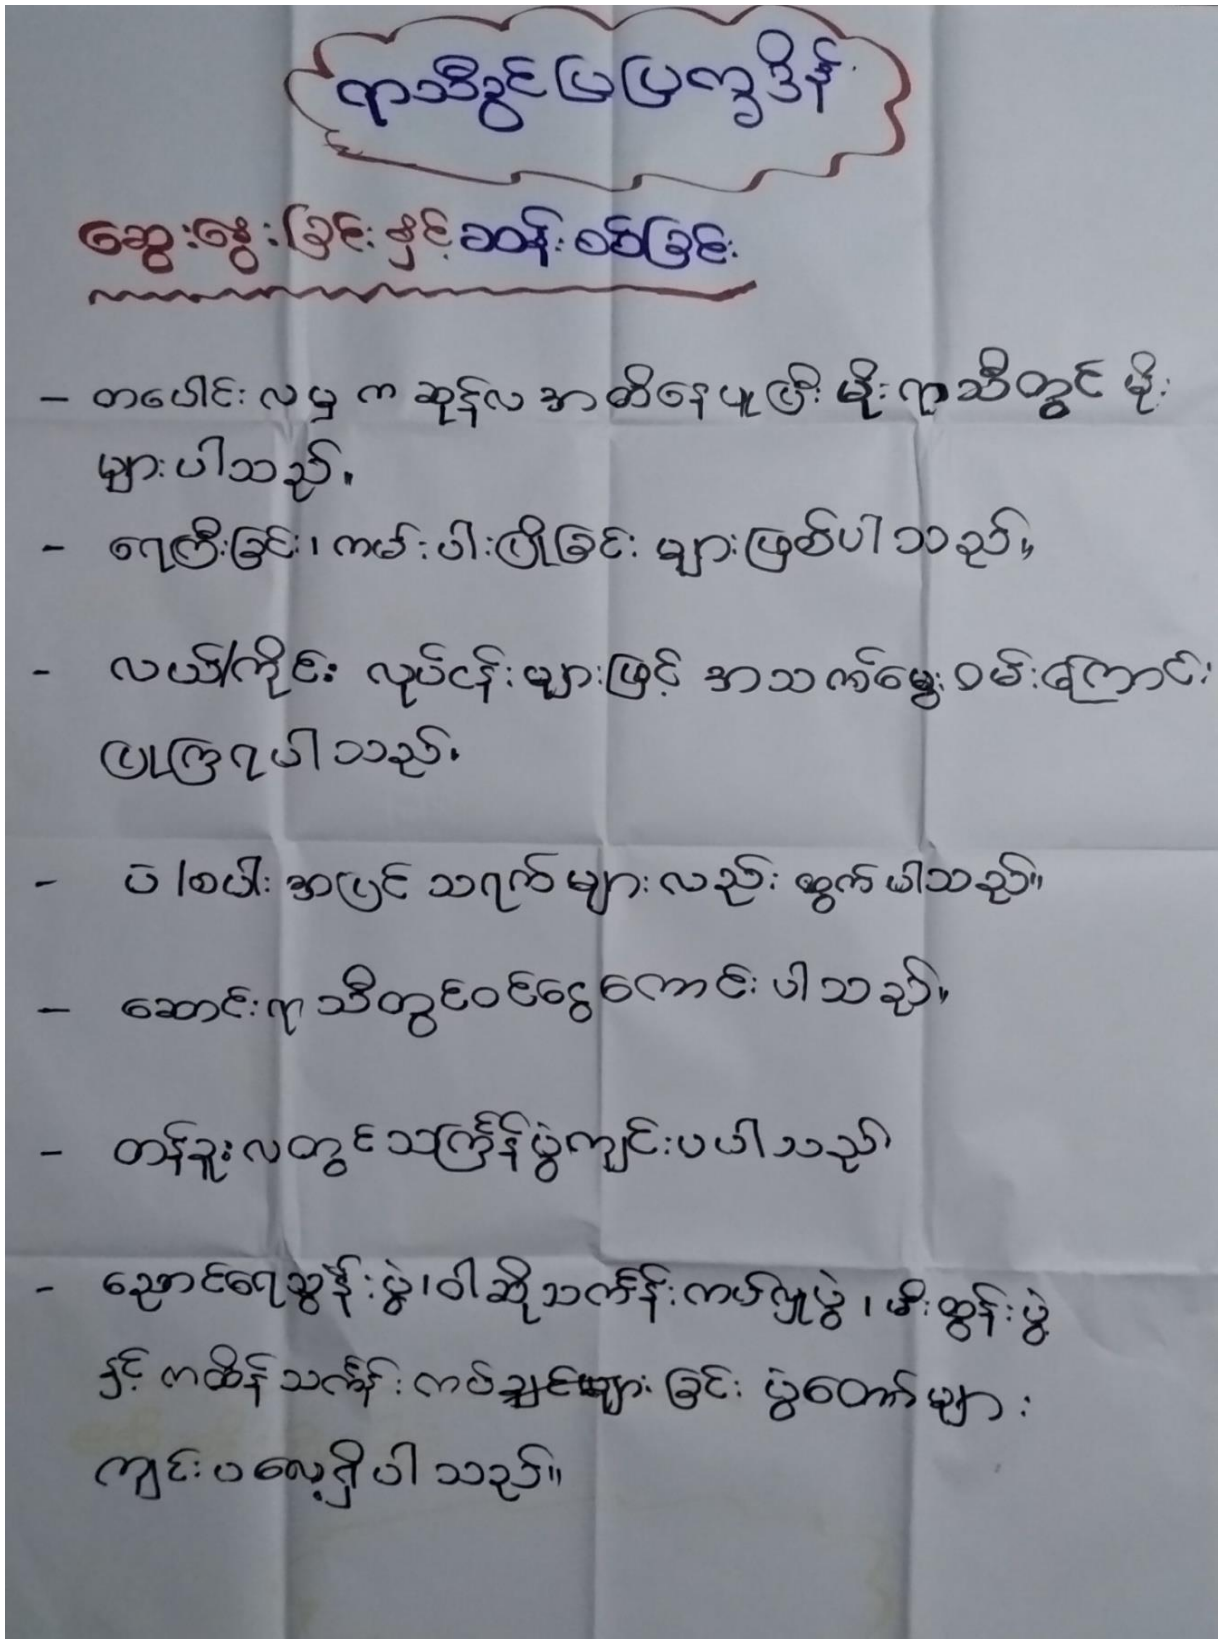 ရာသီခွင်ပြပြက္ခဒိန်
ဆွေးနွေးခြင်းနှင့်ဆန်းစစ်ခြင်း
- တပေါင်းလမှ ကဆုန်လ အထိနေပူပြီး မိုးရာသီတွင် မိုး
များပါသည်။
- ရေကြီးခြင်း၊ ကမ်းပါးပြိုခြင်း များဖြစ်ပါသည်။
- လယ်/ကိုင်း လုပ်ငန်းများဖြင့် အသက်မွေးဝမ်းကြောင်း
ပြုကြရပါသည်။
- ပဲ/စပါး အပြင် သရက်များလည်း ထွက်ပါသည်။
- ဆောင်းရာသီတွင်ဝင်ငွေကောင်းပါသည်။
- တန်ခူးလတွင်သင်္ကြန်ပွဲကျင်းပပါသည်
- ညောင်ရေသွန်းပွဲ၊ ဝါဆိုသင်္ကန်းကပ်လှူပွဲ ၊ မီးထွန်းပွဲ
နှင့် ကထိန်သင်္ကန်းကပ်ချင်းများခြင်း ပွဲတော်များ
ကျင်းပလေ့ရှိပါသည်။